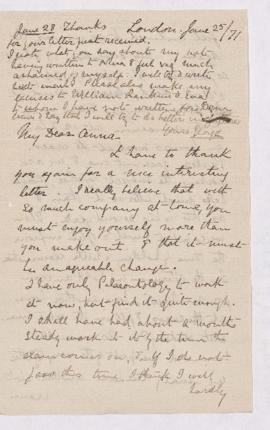 June 28 Thanks London June 25/71
for your letter just received.
I note what you say about my not
having written to Nina & feel very much
ashamed of myself. I will try & write
next mail. Please also make my
excuses to William Rankine & Dawson
to whom I have not written for
& say that I will try to do better in
Yours George
My Dear Anna.
I have to thank
you again for a nice interesting
letter. I really believe that with
so much company at home, you
must enjoy yourself more than
you make out & that it must
be an agreeable change.
I have only Palaeontology, to work
at now, but find it quite enough.
I shall have had about a months
steady work at it by the time the
exam comes on, & if I do not
pass this time I think I will
hardly